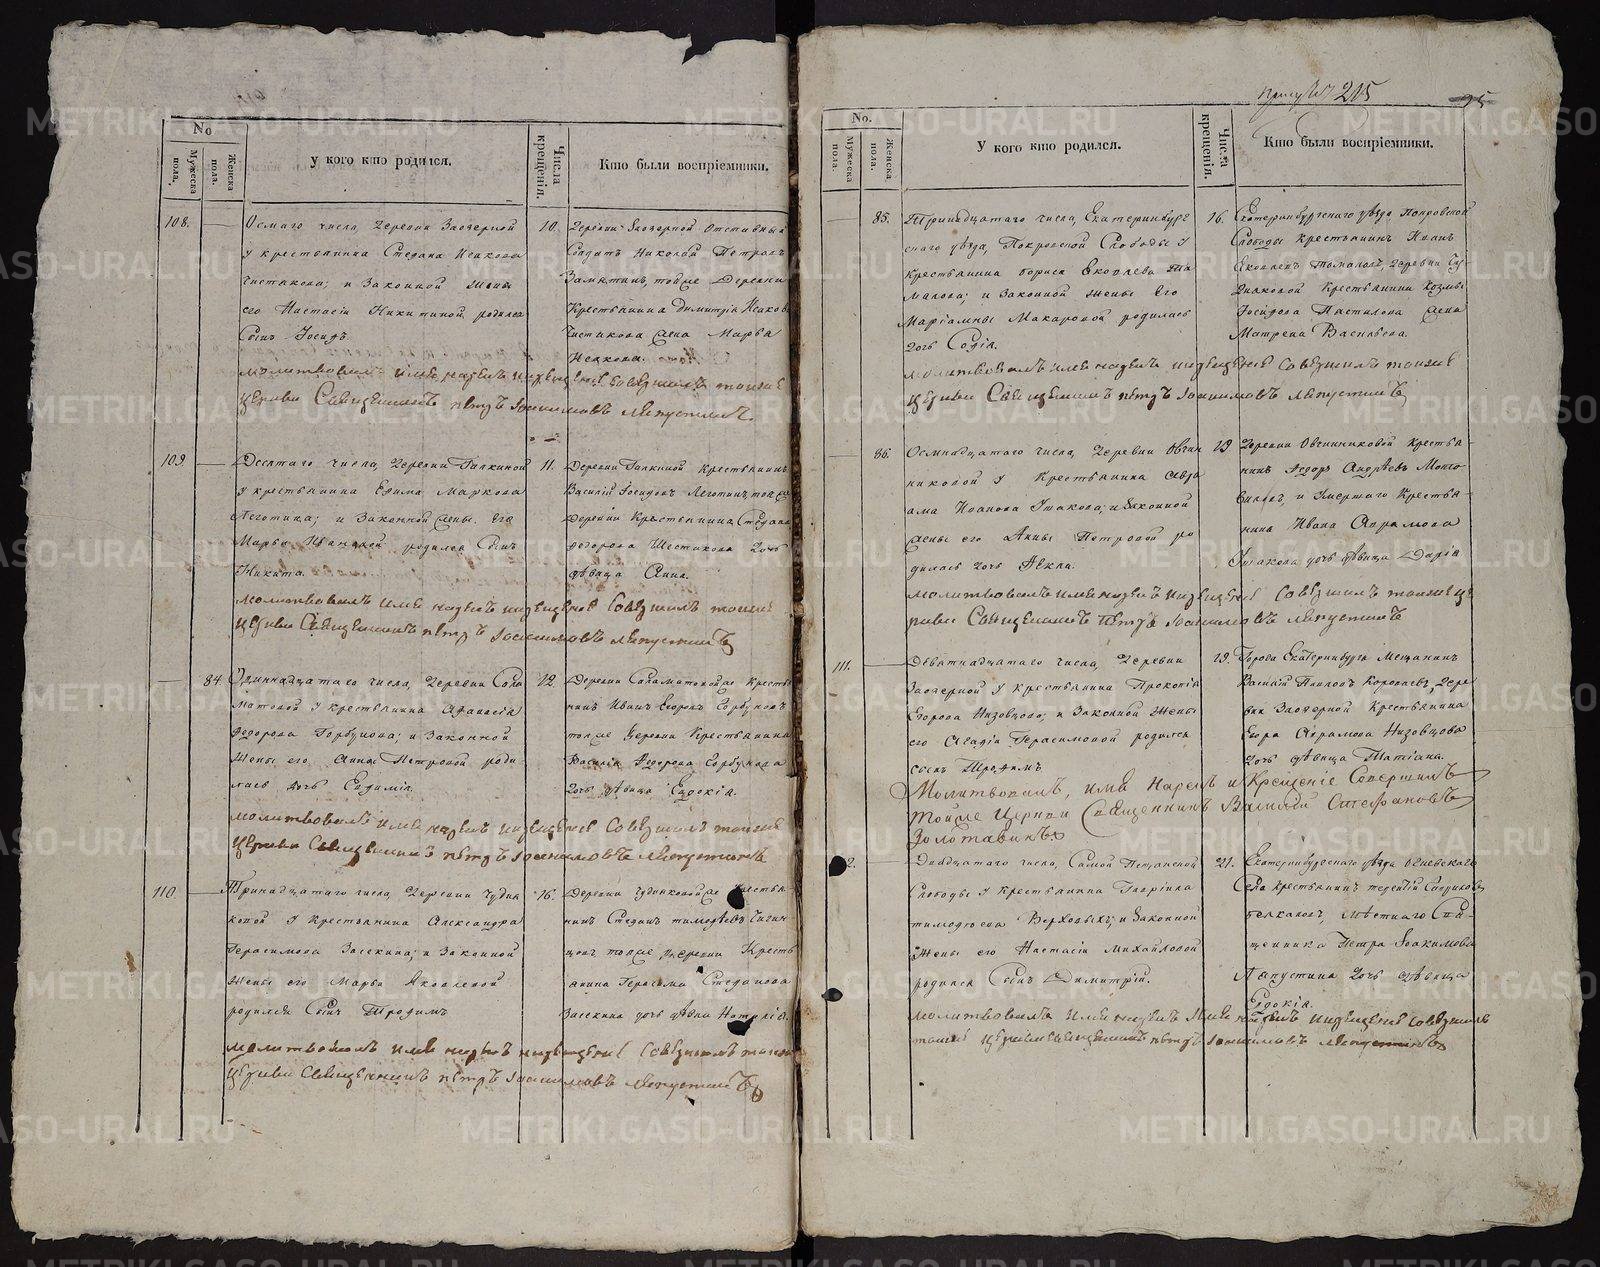 No
Мужеска пола.
Женска пола.
У кого кто родился.
Числа крещенія.
Кто были воспріемники.
108.
Осмаго числа, Деревни Заозерной
у крестьянина Стефана Исакова
Чистякова; и Законной жены
его Настасіи Никитиной родился
Сынъ Іосифъ.
10.
Деревни Заозерной Отставный
Солдатъ Николай Петровъ
тойже Деревни
Крестьянина Димитрія Исакова
Чистякова жена Марѳа
Исакова.
молитвовалъ имя нарекъ и крещеніе совершилъ тояже
церкви Священникъ Петръ Іоакимовъ Ляпустинъ
109.
Десятаго числа, Деревни Галкиной
у крестьянина Ефима Маркова
Леготина; и Законной жены его
Марѳы Ивановой родился Сынъ
Никита.
11.
Деревни Галкиной Крестьянинъ
Василій Іосифовъ Леготинъ, тойже
Деревни Крестьянина Стефана
Федорова Шестакова дочь
дѣвица Анна.
молитвовалъ имя нарекъ и крещеніе совершилъ тояже
церкви Священникъ Петръ Іоакимовъ Ляпустинъ
84.
Одиннадцатаго числа, Деревни Сала
матовой у крестьянина Афанасія
Федорова Горбунова; и Законной
жены его Анны Петровой роди-
лась дочь Евфимія.
12.
Деревни Саламатовойже Крестья
нинъ Иванъ Егоровъ Горбуновъ
тойже Деревни Крестьянина
Василія Федорова Горбунова
дочь дѣвица Евдокія.
молитвовалъ имя нарекъ и крещеніе совершилъ тояже
церкви Священникъ Петръ Іоакимовъ Ляпустинъ
110.
Тринадцатаго числа, Деревни Чудин
ковой у Крестьянина Александра
Герасимова Засекина; и Законной
жены его Марѳы Яковлевой
родился Сынъ Трофимъ
16.
Деревни Чудинковойже Крестья
нинъ Стефанъ Тимофѣевъ
тойже Деревни Кресть
янина Герасима Стефанова
Засекина дочь дѣвка Наталія.
молитвовалъ имя нарекъ и крещеніе совершилъ тояже
церкви Священникъ Петръ Іоакимовъ Ляпустинъ
205
95
No.
Мужеска пола.
Женска пола.
У кого кто родился.
Числа крещенія.
Кто были воспріемники.
85.
Тринадцатаго числа, Екатеринбург
скаго уѣзда, Покровской Слободы у
Крестьянина Бориса Яковлева То
малова; и Законной жены его
Маріамны Макаровой родилась
дочь Софія.
16.
Екатеринбургскаго уѣзда Покровской
Слободы Крестьянинъ Иванъ
Яковлевъ Томаловъ, Деревни Чу-
динковой Крестьянина Козмы
Іосифова Пастухова жена
Матрена Васильева.
молитвовалъ имя нарекъ и крещеніе совершилъ тояже
церкви Священникъ Петръ Іоакимовъ Ляпустинъ
86.
Осмнадцатаго числа, Деревни Овчин
никовой у Крестьянина Авра
ама Иванова Ушакова; и Законной
жены его Анны Петровой ро
дилась дочь Ѳекла.
19
Деревни Овчинниковой Крестья-
нинъ Федоръ Андрѣевъ
и умершаго Крестья-
нина Ивана Абрамова
Ушакова дочь дѣвица Дарія
молитвовалъ имя нарекъ и крещеніе совершилъ тояже це
ркви Священникъ Петръ Іоакимовъ Ляпустинъ
111.
Девятнадцатаго числа, Деревни
Заозерной у крестьянина Прокопія
Егорова Низовцова; и Законной жены
его Агафіи Герасимовой родился
сынъ Трофимъ
19.
Города Екатеринбурга Мещанинъ
Василій Павловъ Королевъ, Дере
вни Заозерной Крестьянина
Егора Абрамова Низовцова
дочь дѣвица Татіана.
Молитвовалъ, имя Нарекъ и Крещеніе Совершилъ
тойже Церкви Священникъ Василій Стефановъ
Золотавинъ
2.
Двадцатаго числа, Самой Песчанской
Слободы у крестьянина Гавріила
Тимофеева Верховыхъ; и Законной
жены его Настасіи Михайловой
родился Сынъ Димитрій.
21.
Екатеринбургскаго уѣзда
Села Крестьянинъ Терентій Спиридоновъ
мѣстнаго Свя-
щенника Петра Іоакимова
Ляпустина дочь дѣвица
Евдокія.
молитвовалъ имя нарекъ и крещеніе совершилъ
тояже церкви Священникъ Петръ Іоакимовъ Ляпустинъ
METRIKI.GASO-URAL.RU